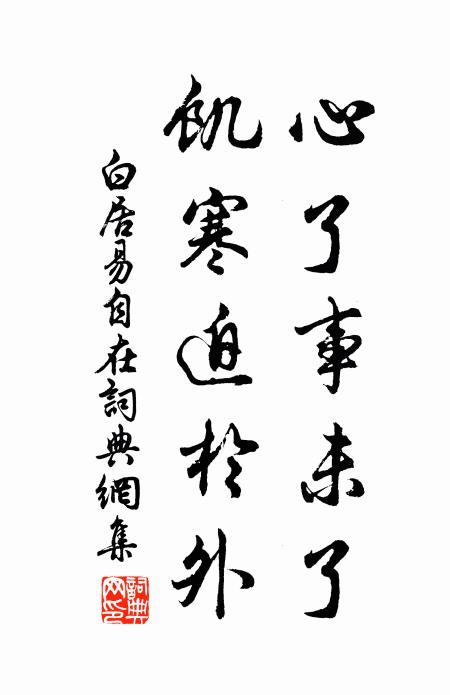 心了事未了
飢寒迫於外
白居易自在詞典網集
詞典網印